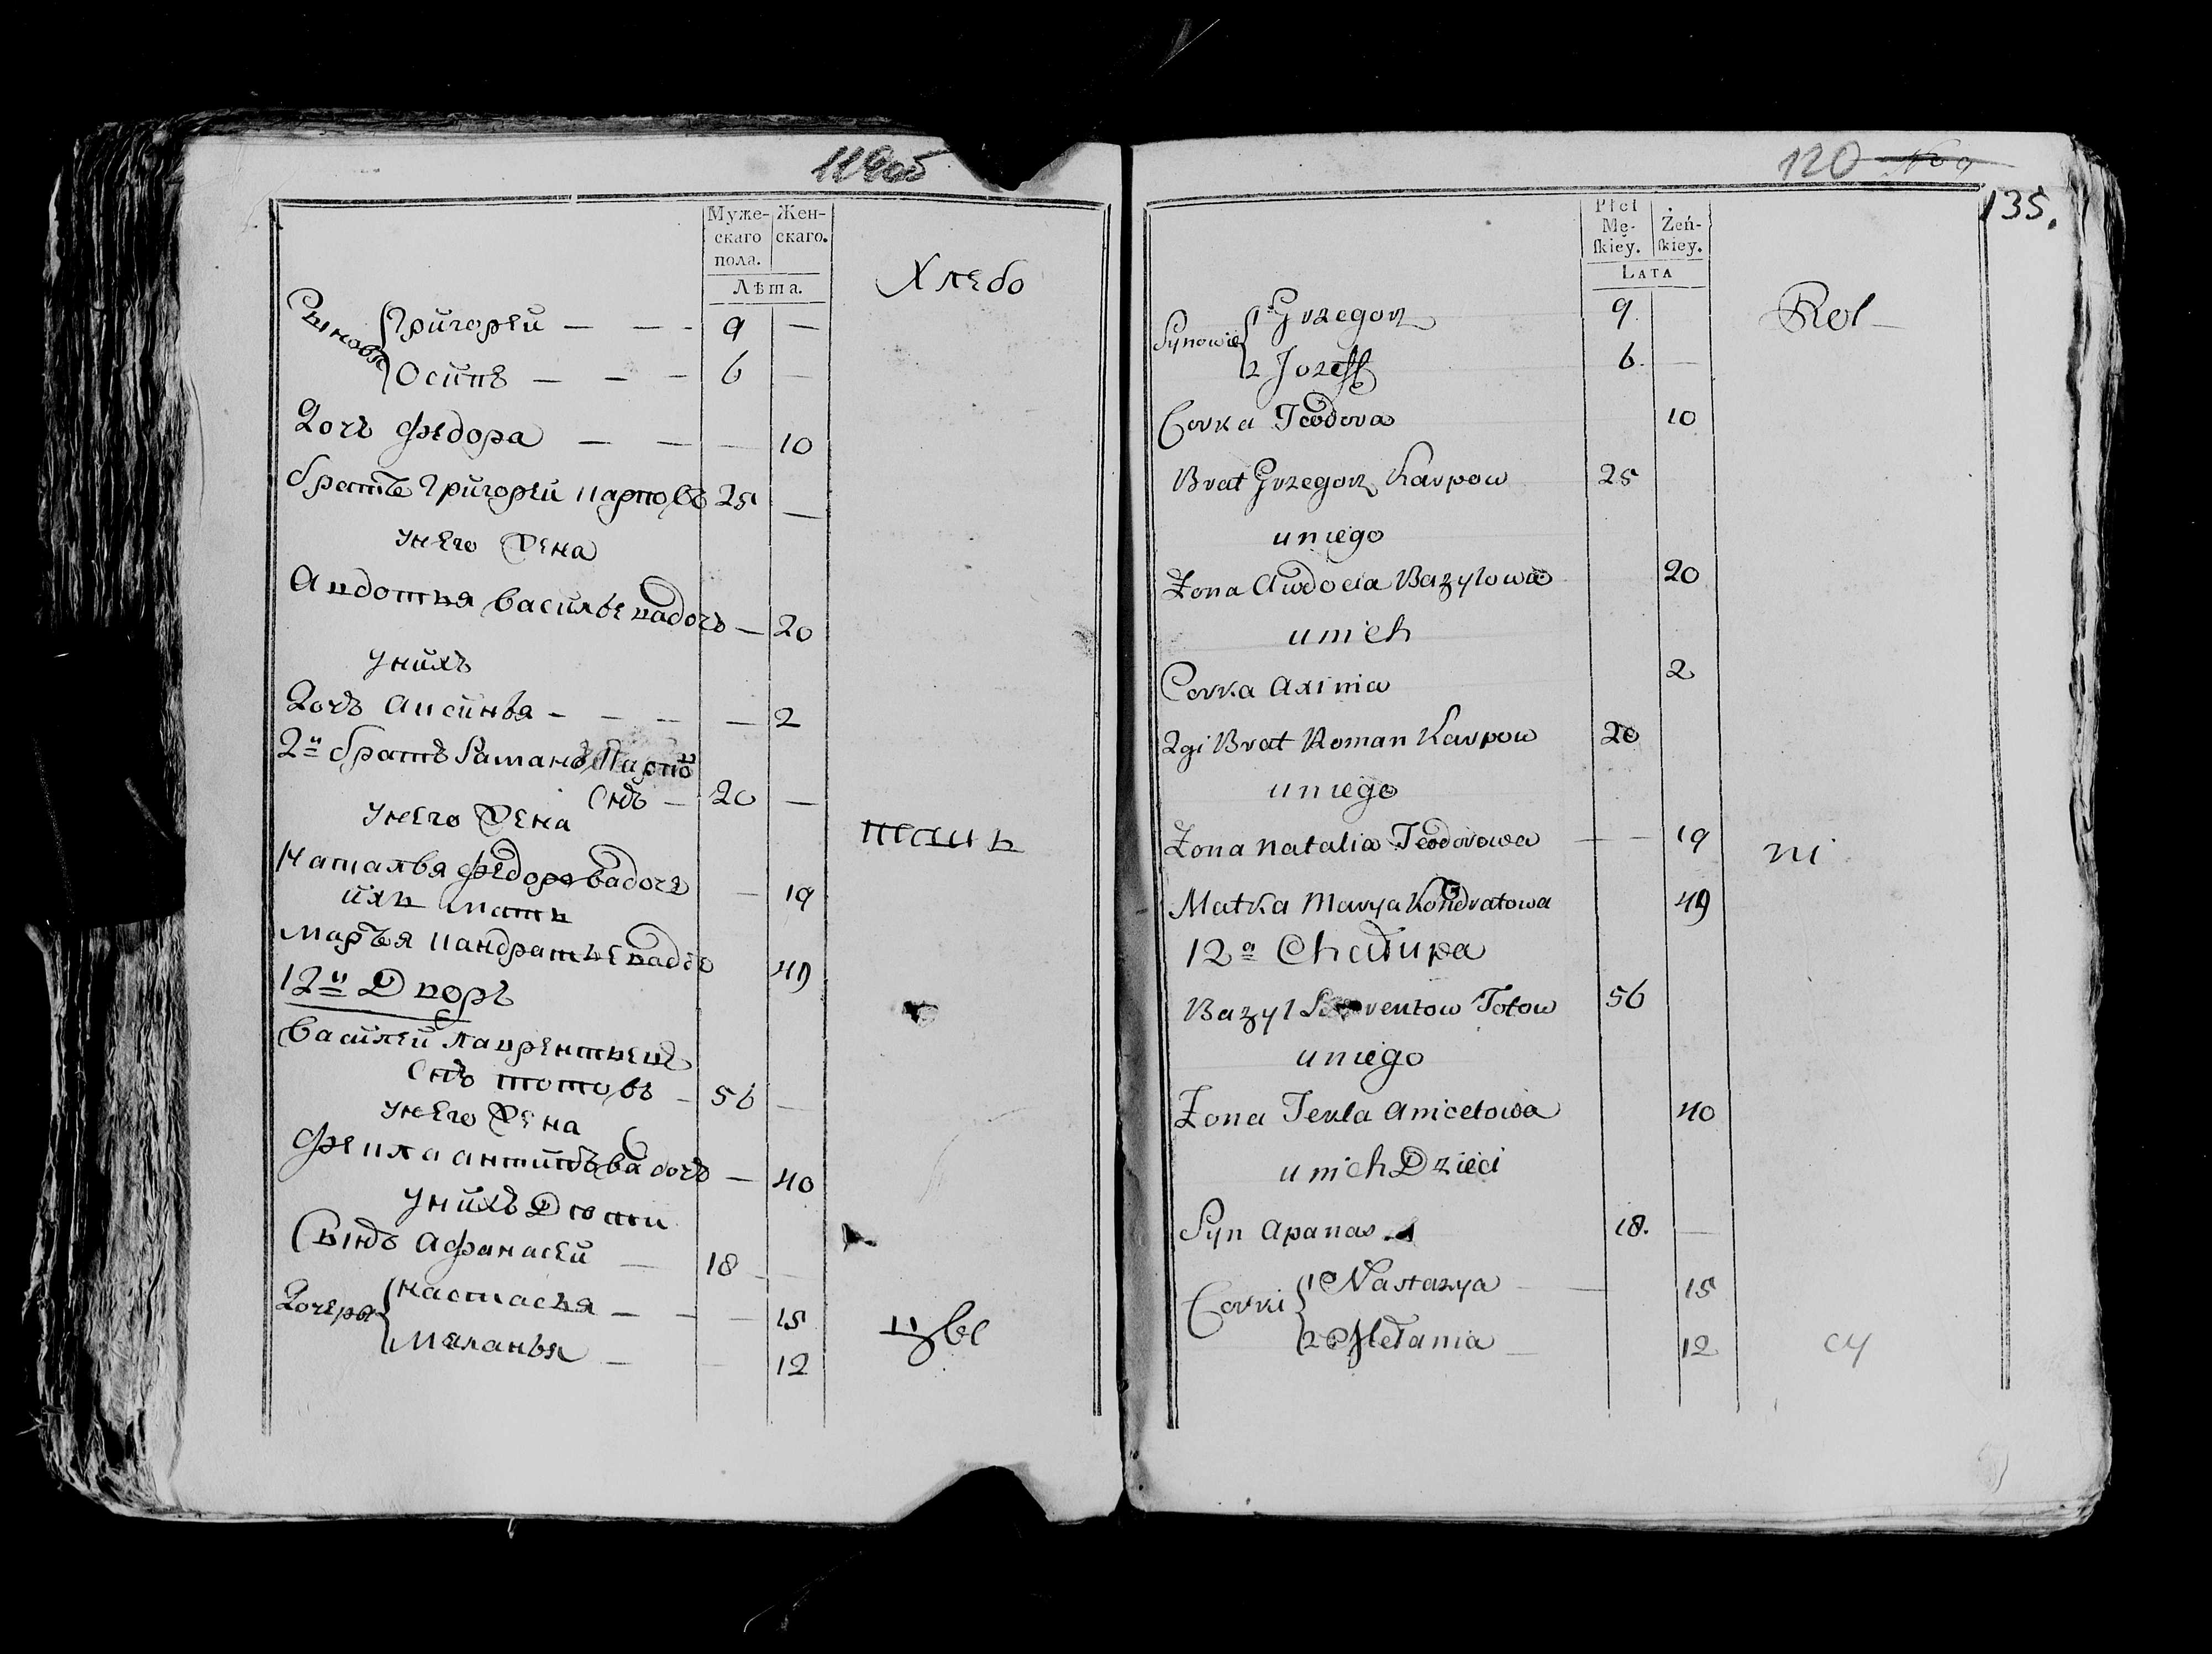 119об
Муже- Жен-
скаго скаго.
пола.
Лѣта.
Хлебо
Сыновя
Григорей — — - 9 —
Осипъ — — — 6 —
Дочь Федора — — — 10
братъ Григорей Карповъ 25 —
унего жена
Авдотья васильева дочь — 20
унихъ
Дочь Аксинья - — — — 2
2й братъ Раманъ Карпов
снъ — 20 —
унего жена
Наталья Федорова дочь — 19
ихъ мать
Марья Кандратьева доч 49
паш
12й Дворъ
Василей Лаврентьевъ
снъ Тотовъ — 56 —
унего жена
Фекла дочь — 40
унихъ Дети
Сынъ Афанасей — 18 —
Дочеря
Настасья — — — 15
Маланья — — 12
цы все
120
135.
Płci
Mę- Żeń-
skiey. skiey.
LATA
Rol-
Synowie
1 Grzegorz 9
2 Jozeff 6. —
Corka Teodora 10
Brat Grzegorz Karpow 25
uniego
Żona Awdocia Bazylowa 20
unich
Corka Axinia 2
2gi Brat Roman Karpow 20
uniego
Żona Natalia Teodorowa — — 19
ni
Matka Marya Kondratowa 49
12a Chałupa
Bazyl Totow 56
uniego
Żona Tekla Anicetowa 40
unich Dzieci
Syn Apanas 18. —
Corki
1 Nastazya — — 15
2 Mełania — 12
cy